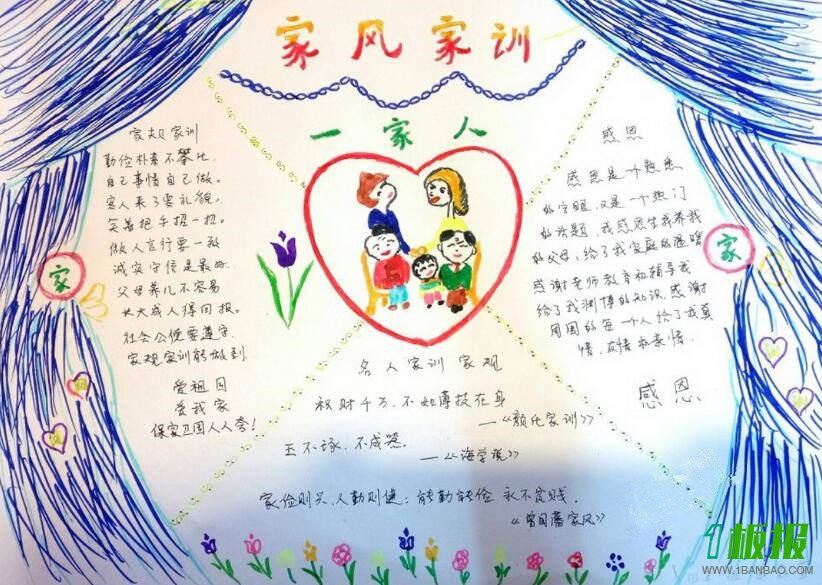 家风家训
一家人
家规家训
勤俭朴素不攀比
自己事情自己做。
客人来了要礼貌,
笑着把手招一招。
做人言行要一致
诚实守信是最好.
父母养儿不容易
长大成人得回报。
社会公德要遵守
家规家训能做到
爱祖国
爱我家
保家卫国人人夸!
家
感恩
感恩是一个熟悉
的字眼,又是一个热门
的话题,我感恩生我养我
的父母,给了我家庭的温暖
感谢老师教育和指导我
给了我渊博的知识.感谢
周围的每一个人给了我真
情,友情和亲情.
感恩
家
训
名人家训家规
积财千万.不如薄技在身
——《颜氏家训》
玉不琢.不成器.
——《诲学说》
家俭则兴,人勤则健;能勤能俭 永不贫贱.
《曾国藩家风》
1板报
WWW.1BANBAO.COM